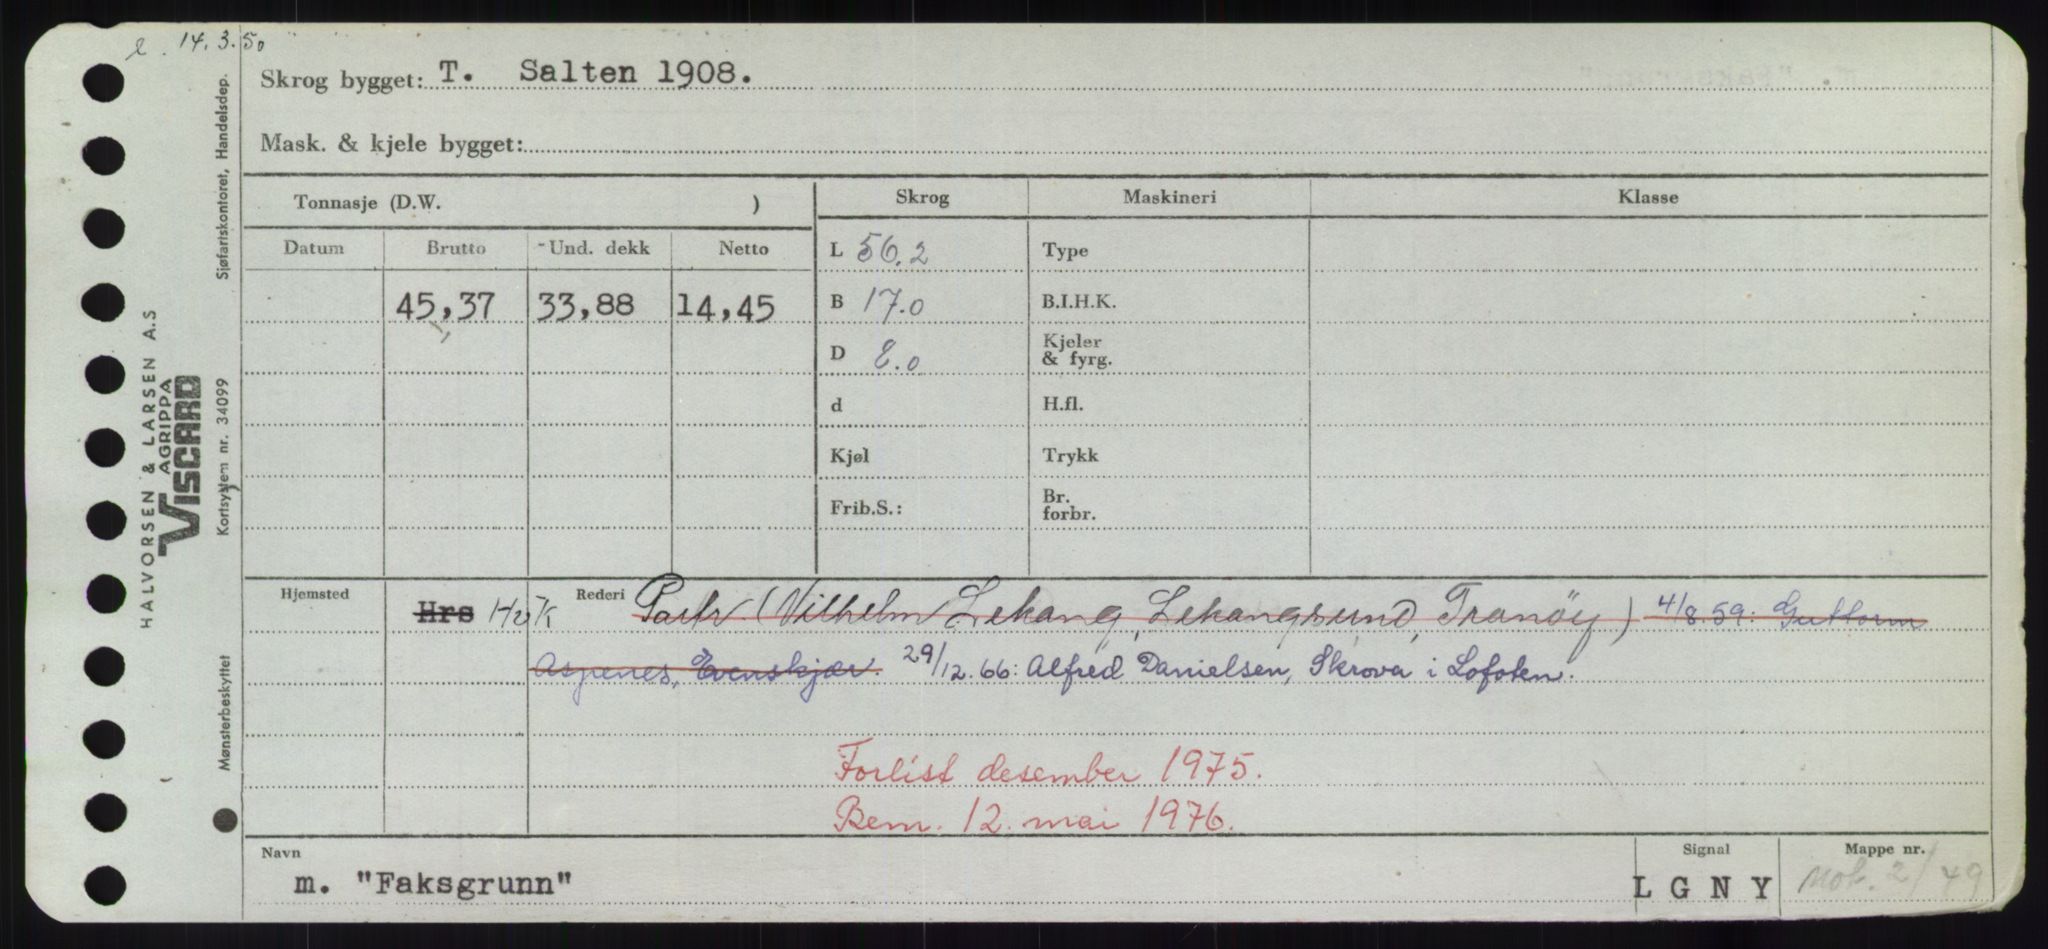 14.3.50
Skrog bygget: T. Salten 1908.
Mask. & kjele bygget:
Tonnasje (D.W. ) Skrog Maskineri Klasse
Datum Brutto Und. dekk Netto L 56.2 Type
45,37 33,88 14,45 B 17.0 B.I.H.K.
D 8.0 Kjeler & fyrg.
d H.fl.
Kjøl Trykk
Frib.S.: Br. forbr.
Hjemsted Hrs HvK Rederi Partr. (Vilhelm Lekang, Lekangsund, Tranöy) 4/8.59: Guttorm
Aspenes, Evenskjær. 29/12.66: Alfred Danielsen, Skrova i Lofoten.
Forlist desember 1975.
Bem. 12. mai 1976.
Navn Signal Mappe nr.
m. "Faksgrunn" LGNY 2/49
HALVORSEN & LARSEN A.S
AGRIPPA
VISCARD
Kortsystem nr. 34099
Sjøfartskontoret, Handelsdep.
Mønsterbeskyttet